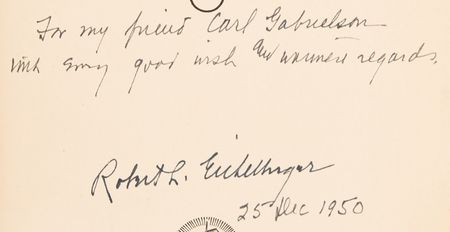 For my friend Carl Gabrielson
with every good wish and warmest regards.
Robert L. Eichelberger
25 Dec 1950